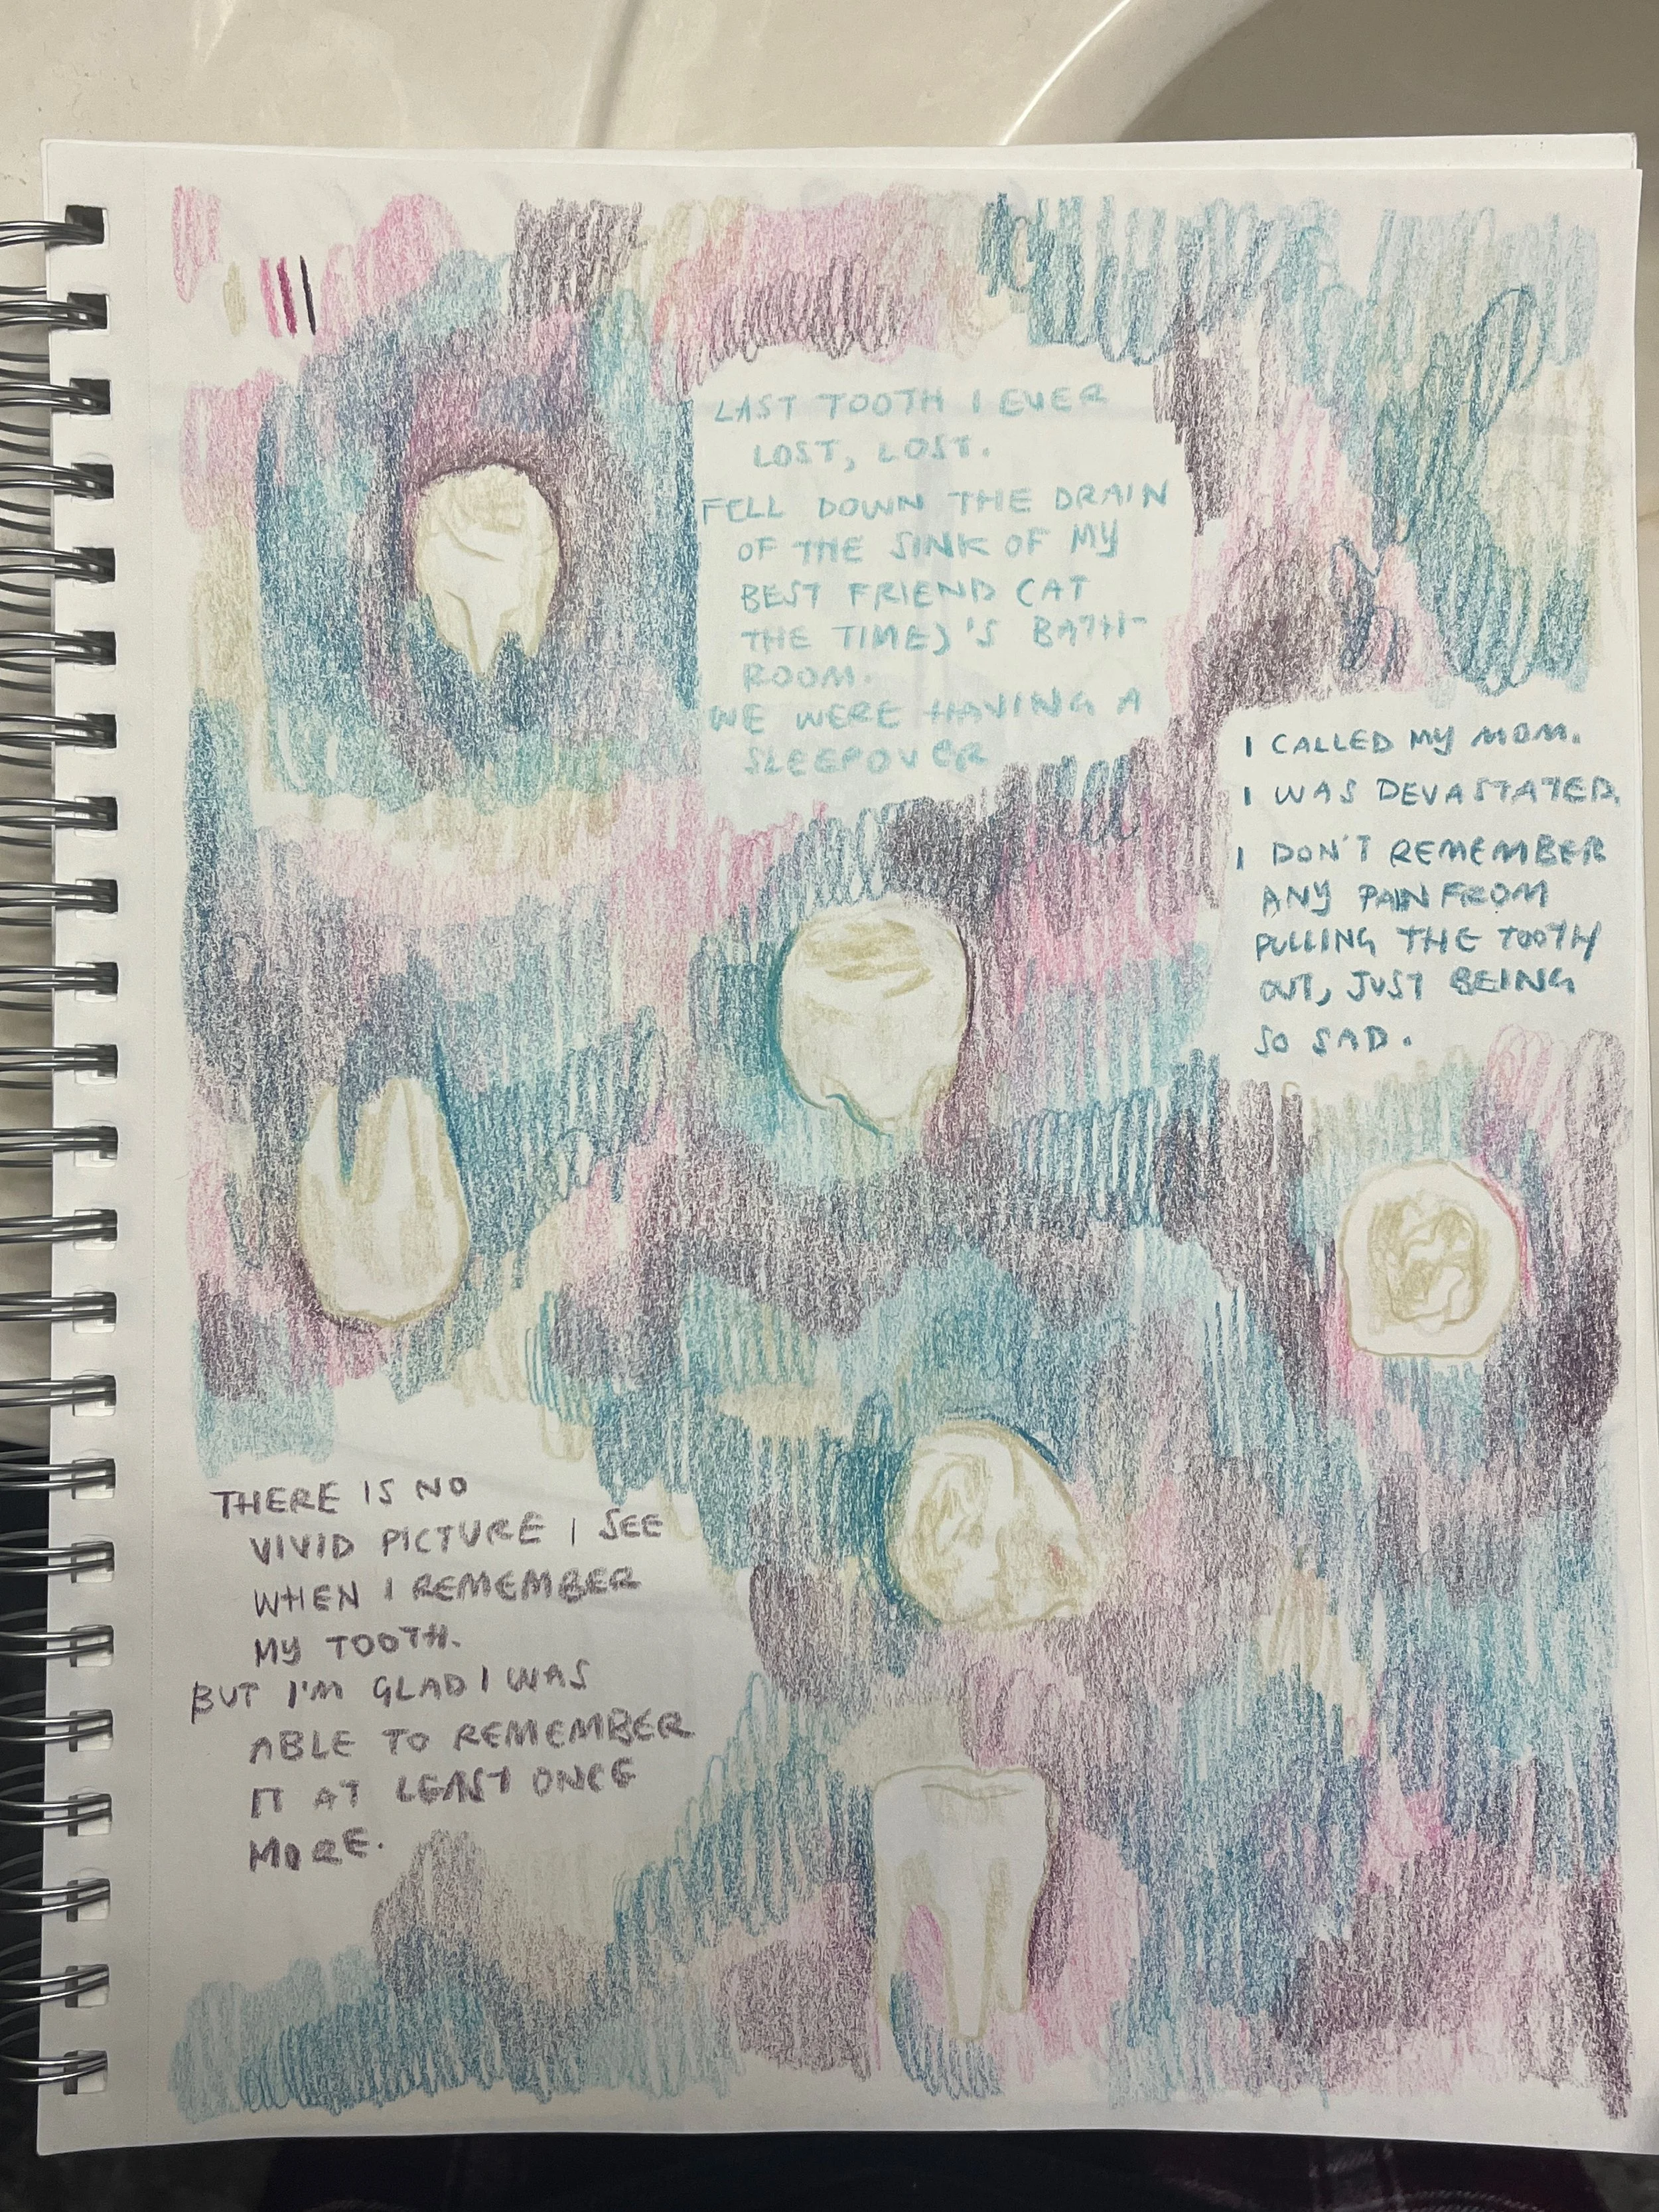 LAST TOOTH I EVER
LOST, LOST.
FELL DOWN THE DRAIN
OF THE SINK OF MY
BEST FRIEND (AT
THE TIME)'S BATH-
ROOM.
WE WERE HAVING A
SLEEPOVER
I CALLED MY MOM.
I WAS DEVASTATED.
I DON'T REMEMBER
ANY PAIN FROM
PULLING THE TOOTH
OUT, JUST BEING
SO SAD.
THERE IS NO
VIVID PICTURE I SEE
WHEN I REMEMBER
MY TOOTH.
BUT I'M GLAD I WAS
ABLE TO REMEMBER
IT AT LEAST ONCE
MORE.